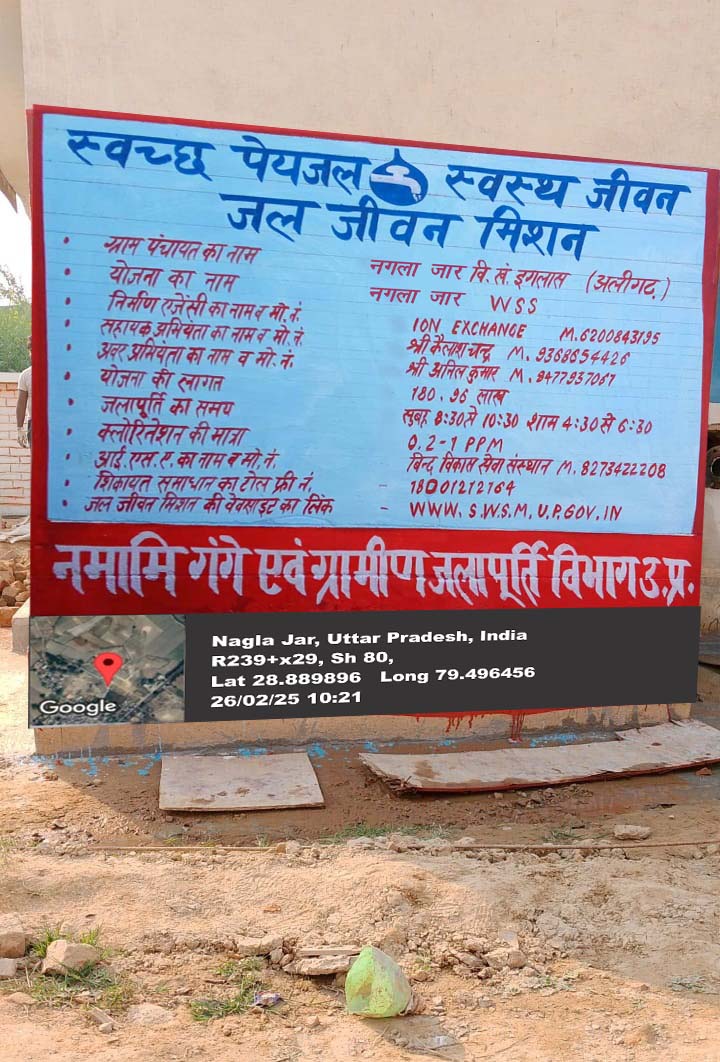 स्वच्छ पेयजल स्वस्थ जीवन
जल जीवन मिशन
• ग्राम पंचायत का नाम नगला जार वि.खं. इगलास (अलीगढ़)
• योजना का नाम नगला जार WSS
• निर्माण एजेंसी का नाम व मो.नं. ION EXCHANGE M.6200843195
• सहायक अभियंता का नाम व मो.नं. श्री कैलाश चन्द्र M. 9368654426
• अवर अभियंता का नाम व मो.नं. श्री अनिल कुमार M. 9477937067
• योजना की लागत 180.96 लाख
• जलापूर्ति का समय सुबह 8:30 से 10:30 शाम 4:30 से 6:30
• क्लोरिनेशन की मात्रा 0.2-1 PPM
• आई.एस.ए. का नाम व मो.नं. बिन्द विकास सेवा संस्थान M. 8273422208
• शिकायत समाधान का टोल फ्री नं. - 18001212164
• जल जीवन मिशन की वेवसाइट का लिंक - WWW.S.W.S.M.U.P.GOV.IN
नमामि गंगे एवं ग्रामीण जलापूर्ति विभाग उ.प्र.
Nagla Jar, Uttar Pradesh, India
R239+x29, Sh 80,
Lat 28.889896 Long 79.496456
26/02/25 10:21
Google